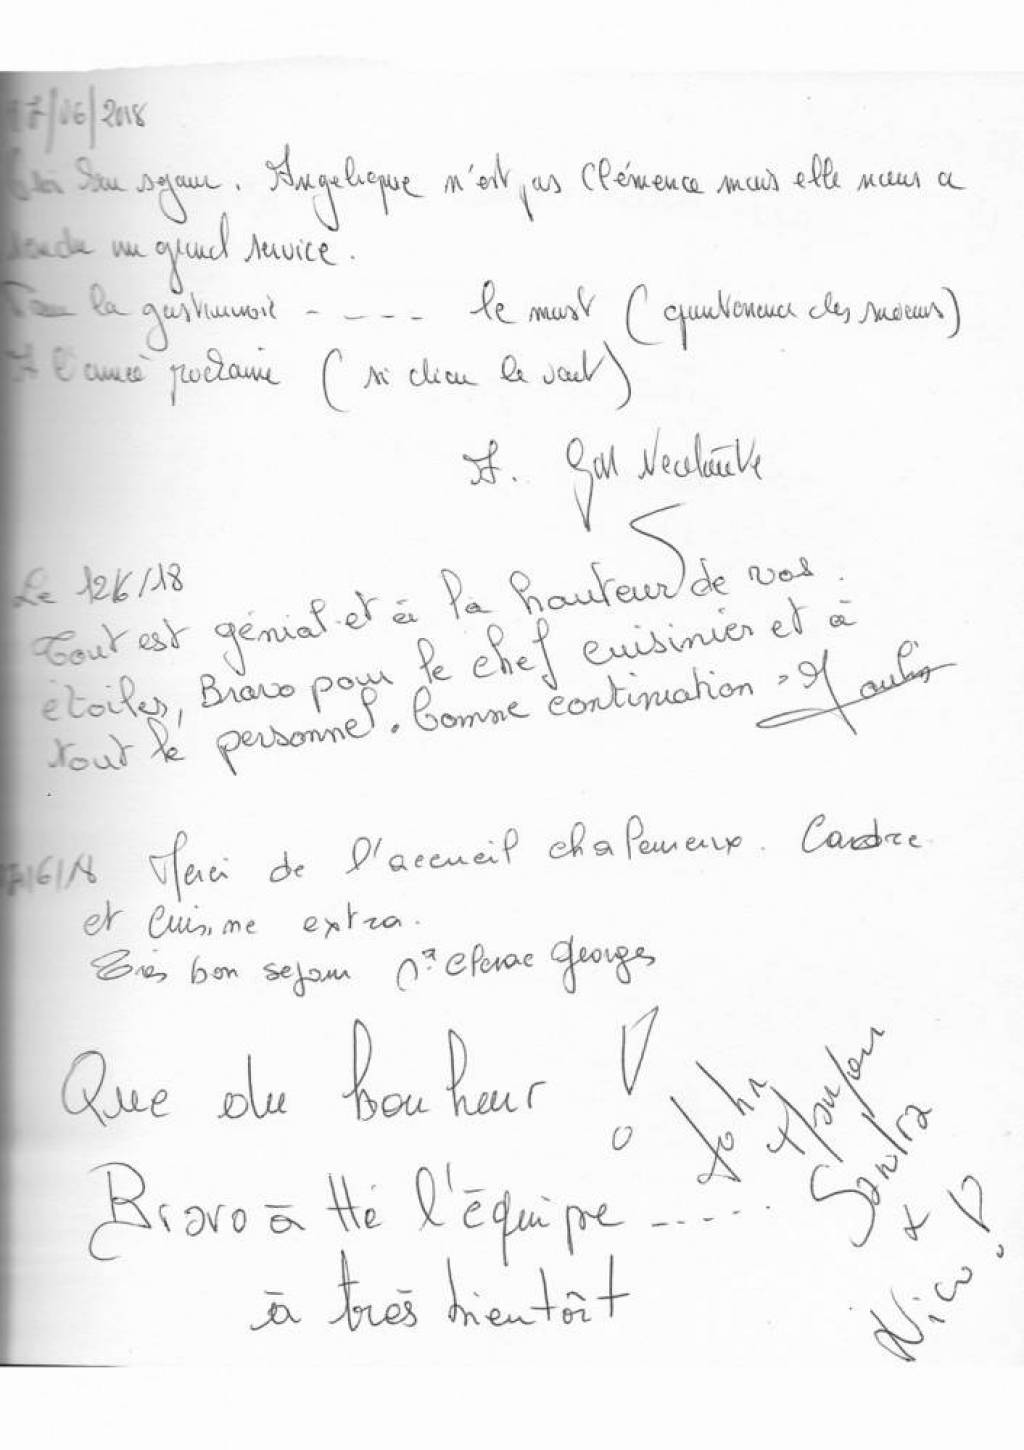 17/06/2018
bon séjour. Angelique n'est pas Clémence mais elle nous a
rendu un grand service.
la gastronomie - - - - - le must (quintessence des saveurs)
A l'année prochaine (si dieu le veut)
A.
Le 12/6/18
Tout est génial et à la hauteur de vos
étoiles, Bravo pour le chef cuisinier et à
tout le personnel. Bonne continuation.
17/6/18 Merci de l'accueil chaleureux. Cadre
et cuisine extra.
Très bon sejour Georges
Que du bonheur !
Bravo à tte l'équipe - - - - -
à très bientôt
John
Sandra
+
Nico !